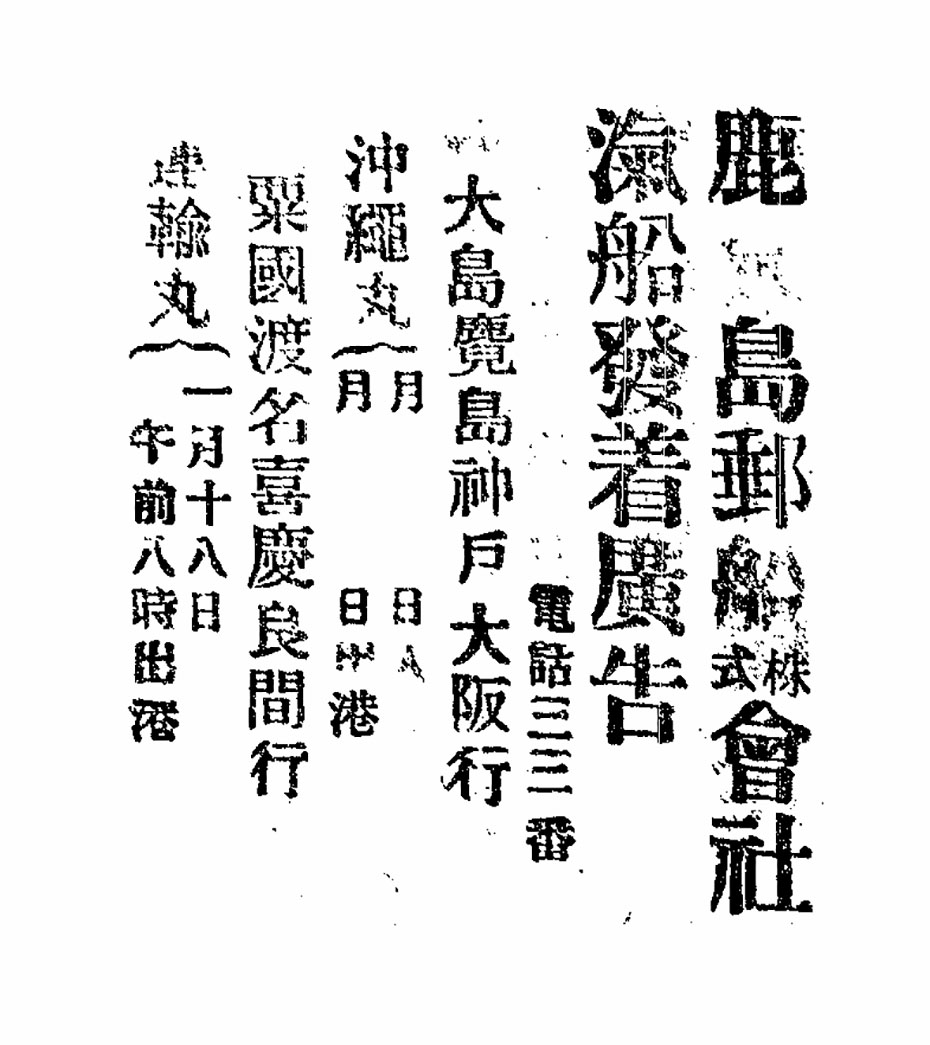 鹿島郵船株式會社
滊船發着廣告
電話三三番
大島麑島神戸大阪行
沖繩丸
月 日入
月 日出港
粟國渡名喜慶良間行
運輸丸
一月十八日
午前八時出港